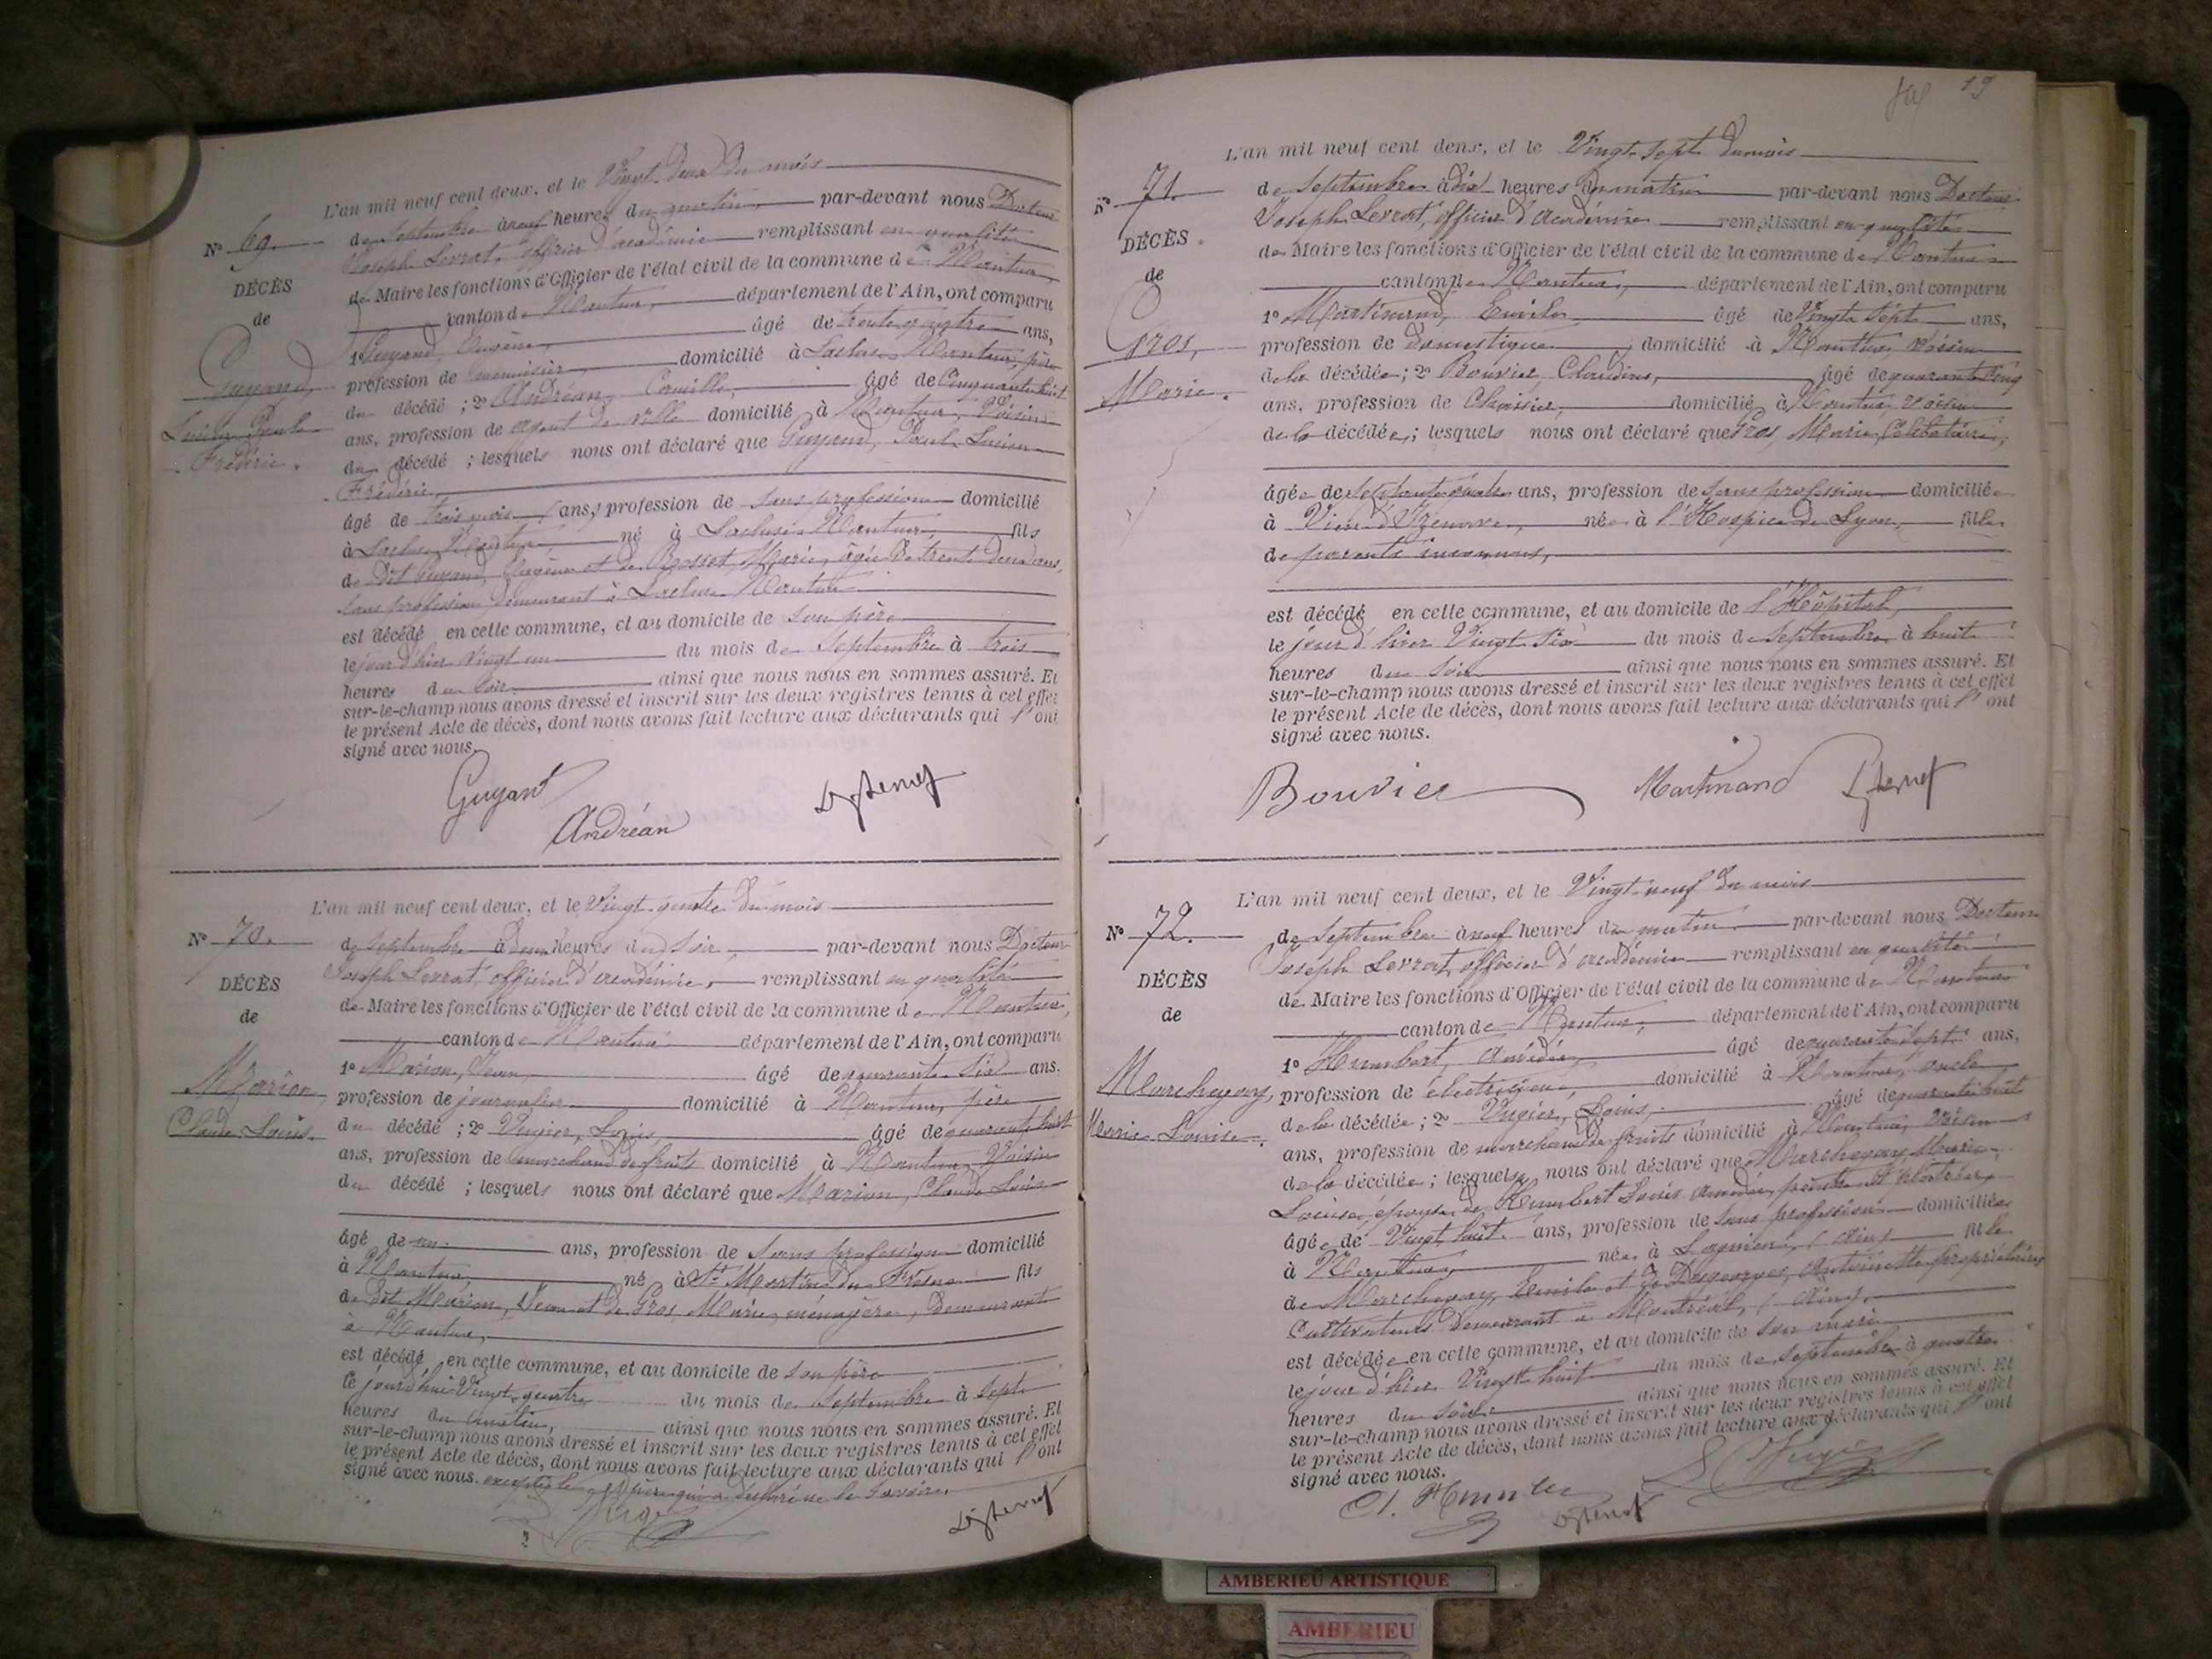 L'an mil neuf cent deux, et le Vingt-deux du mois
N° 69.
de Septembre à neuf heures du matin, par-devant nous Docteur
Joseph Levrat, officier d'académie remplissant en qualité
DÉCÈS
de Maire les fonctions d'Officier de l'état civil de la commune de Nantua,
de
canton de Nantua, département de l'Ain, ont comparu
1° Guyand, Eugène, âgé de trente quatre ans,
Guyand,
profession de menuisier, domicilié à Lacluse-Nantua, père
du décédé ; 2° Andréan, Camille, âgé de Cinquante huit
Lucien Paul
ans, profession de agent de ville domicilié à Nantua, Voisin
Frédéric.
du décédé ; lesquels nous ont déclaré que Guyand, Paul Lucien
Frédéric,
âgé de trois mois (ans,) profession de sans profession domicilié
à Lacluse-Nantua né à Lacluse-Nantua, fils
de Dit Guyand, Eugène et de Rosset, Marie, âgée de trente deux ans,
sans profession demeurant à Lacluse Nantua
est décédé en cette commune, et au domicile de son père
le jour d'hier Vingt un du mois de Septembre à trois
heures du soir, ainsi que nous nous en sommes assuré. Et
sur-le-champ nous avons dressé et inscrit sur les deux registres tenus à cet effet
le présent Acte de décès, dont nous avons fait lecture aux déclarants qui l'ont
signé avec nous.
Guyand
Andréan
L'an mil neuf cent deux, et le Vingt-quatre du mois
N° 70.
de Septembre à deux heures du soir, par-devant nous Docteur
Joseph Levrat, officier d'académie, remplissant en qualité
DÉCÈS
de Maire les fonctions d'Officier de l'état civil de la commune de Nantua,
de
canton de Nantua département de l'Ain, ont comparu
1° Marion, Jean, âgé de quarante six ans.
Marion,
profession de journalier domicilié à Nantua, père
Claude Louis.
du décédé ; 2° Vugier, Louis, âgé de quarante huit
ans, profession de marchand de fruits domicilié à Nantua, Voisin
du décédé ; lesquels nous ont déclaré que Marion, Claude Louis
âgé de un. ans, profession de Sans profession domicilié
à Nantua, né à St Martin du Fresne fils
de Dit Marion, Jean et de Gros, Marie, ménagère, Demeurant
à Nantua,
est décédé en cette commune, et au domicile de son père
le jourd'hui Vingt-quatre du mois de Septembre à Sept
heures du matin, ainsi que nous nous en sommes assuré. Et
sur-le-champ nous avons dressé et inscrit sur les deux registres tenus à cet effet
le présent Acte de décès, dont nous avons fait lecture aux déclarants qui l'ont
signé avec nous. excepté le père qui a déclaré ne le savoir.
19
L'an mil neuf cent deux, et le Vingt-Sept du mois
N° 71.
de Septembre à dix heures du matin par-devant nous Docteur
Joseph Levrat, officier d'académie remplissant en qualité
DÉCÈS
de Maire les fonctions d'Officier de l'état civil de la commune de Nantua
de
canton de Nantua, département de l'Ain, ont comparu
1° Martinand, Emile, âgé de Vingt Sept ans,
Gros,
profession de domestique, domicilié à Nantua, voisin
Marie.
de la décédée ; 2° Bouvier, Claudius, âgé de quarante cinq
ans, profession de domicilié à Nantua, voisin
de la décédée ; lesquels nous ont déclaré que Gros, Marie, Célibataire,
âgée de Septante quatre ans, profession de Sans profession domiciliée
à Vieu d'Izenave, née à l'Hospice de Lyon, fille
de parents inconnus,
est décédé en cette commune, et au domicile de l'Hôpital,
le jour d'hier Vingt Six du mois de Septembre à huit
heures du soir ainsi que nous nous en sommes assuré. Et
sur-le-champ nous avons dressé et inscrit sur les deux registres tenus à cet effet
le présent Acte de décès, dont nous avons fait lecture aux déclarants qui l'ont
signé avec nous.
Bouvier Martinand
L'an mil neuf cent deux, et le Vingt-neuf du mois
N° 72.
de Septembre à neuf heures du matin par-devant nous Docteur
Joseph Levrat, officier d'académie remplissant en qualité
DÉCÈS
de Maire les fonctions d'Officier de l'état civil de la commune de Nantua
de
canton de Nantua, département de l'Ain, ont comparu
1° Humbert, Amédée, âgé de quarante Sept ans,
Marchegay,
profession de électricien, domicilié à Nantua, oncle
Marie-Louise.
de la décédée ; 2° Vugier, Louis, âgé de quarante huit
ans, profession de marchand de fruits domicilié à Nantua, voisin
de la décédée ; lesquels nous ont déclaré que Marchegay, Marie
Louise, épouse de Humbert Louis Amédée, peintre et plâtrier,
âgée de Vingt huit ans, profession de Sans profession domiciliée
à Nantua, née à Lagnieu, (Ain) fille
de Marchegay, Emile et de Desgeorges, Antoinette propriétaires
Cultivateurs Demeurant à Montréal, (Ain),
est décédée en cette commune, et au domicile de son mari
le jour d'hier Vingt huit du mois de Septembre à quatre
heures du soir ainsi que nous nous en sommes assuré. Et
sur-le-champ nous avons dressé et inscrit sur les deux registres tenus à cet effet
le présent Acte de décès, dont nous avons fait lecture aux déclarants qui l'ont
signé avec nous.
AMBERIEU ARTISTIQUE
AMBERIEU